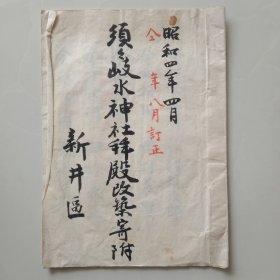 昭和四年四月
仝年八月訂正
須岐水神社拜殿改築寄附
新井區